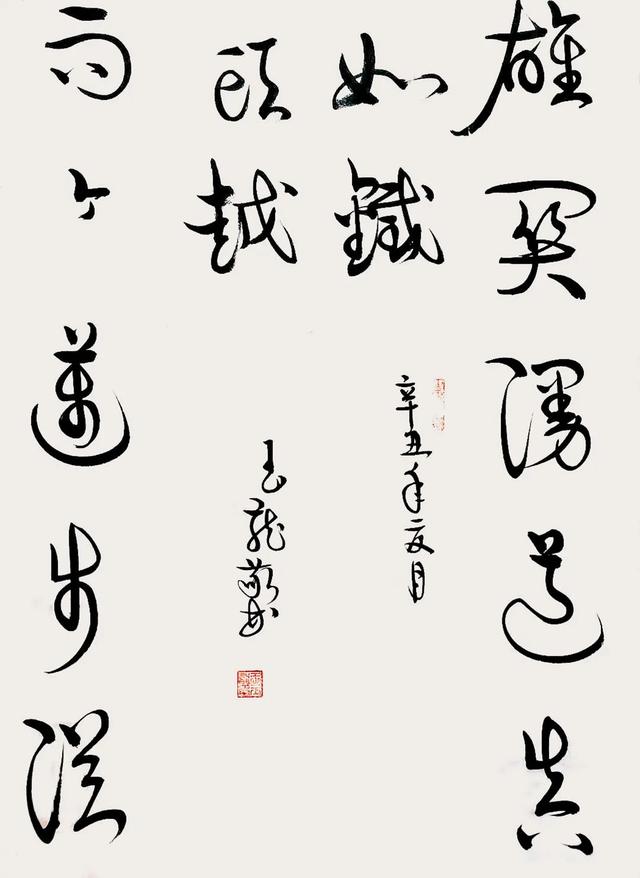 雄關漫道真
如鐵
辛丑年夏月
而今邁步從
頭越
玉龍敬書